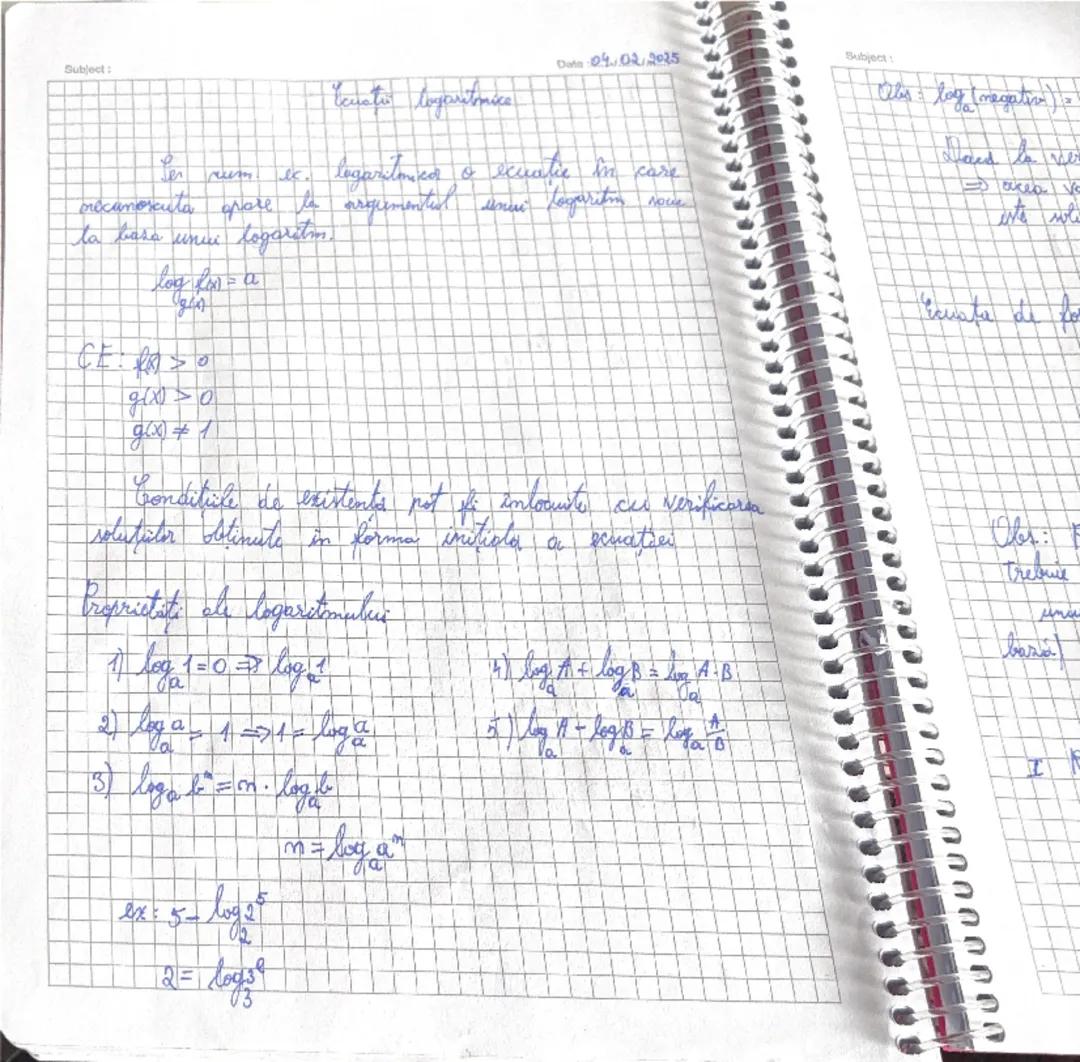 Subject :
Date : 04. 02. 2025
Ecuații logaritmice
Se num. ec. logaritmică o ecuație în care
necunoscuta apare la argumentul unui logaritm sau
la baza unui logaritm.
log_g(x) f(x) = a
CE: f(x) > 0
g(x) > 0
g(x) ≠ 1
Condițiile de existență pot fi înlocuite cu verificarea
soluțiilor obținute în forma inițială a ecuației
Proprietăți ale logaritmului
1) log_a 1 = 0 => log_a 1
2) log_a a = 1 => 1 = log_a a
3) log_a b^n = n · log_a b
n = log_a a^n
ex: 5 = log_2 2^5
2 = log_3 3^2
4) log_a A + log_a B = log_a A·B
5) log_a A - log_a B = log_a A/B
Subject :
Obs : log_a (negativ) =
Dacă la ver
=> acea va
este solu
Ecuația de fo
Obs.:
trebuie
unui
bază)
I